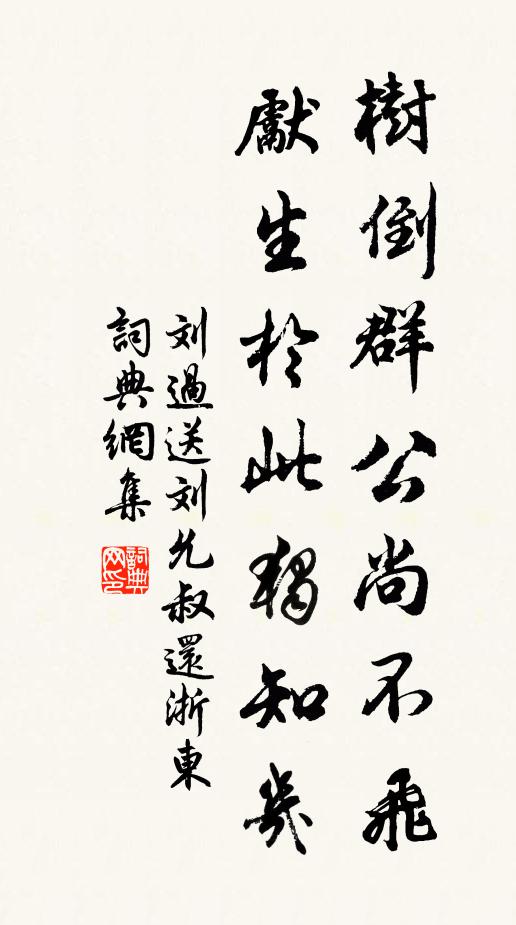 樹倒群公尚不飛
獻生於此獨知幾
刘過送刘允叔還浙東
詞典網集
詞典网印